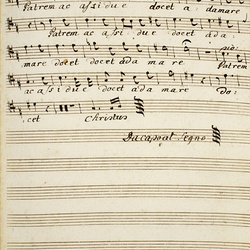 Patrem ac assidue docet a damare
Patrem ac assidue docet ada:
mare docet docet ada mare Patrem
ac assidue docet ada mare Do:
:cet Christus
Da capo al Segno